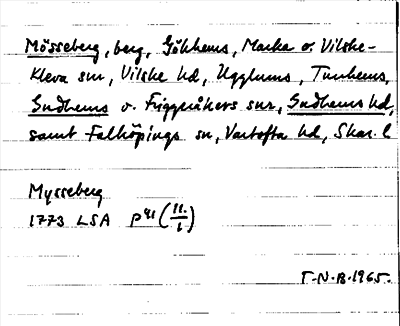 Mösseberg, berg, Gökhems, Marka o. Vilske-
Kleva snr, Vilske hd, Ugglums, Tunhems,
Gudhems o. Friggeråkers snr, Gudhems hd,
samt Falköpings sn, Vartofta hd, Skar. l
Mysseberg
1773 LSA P 41 (11./1)
T-N-B-1965.